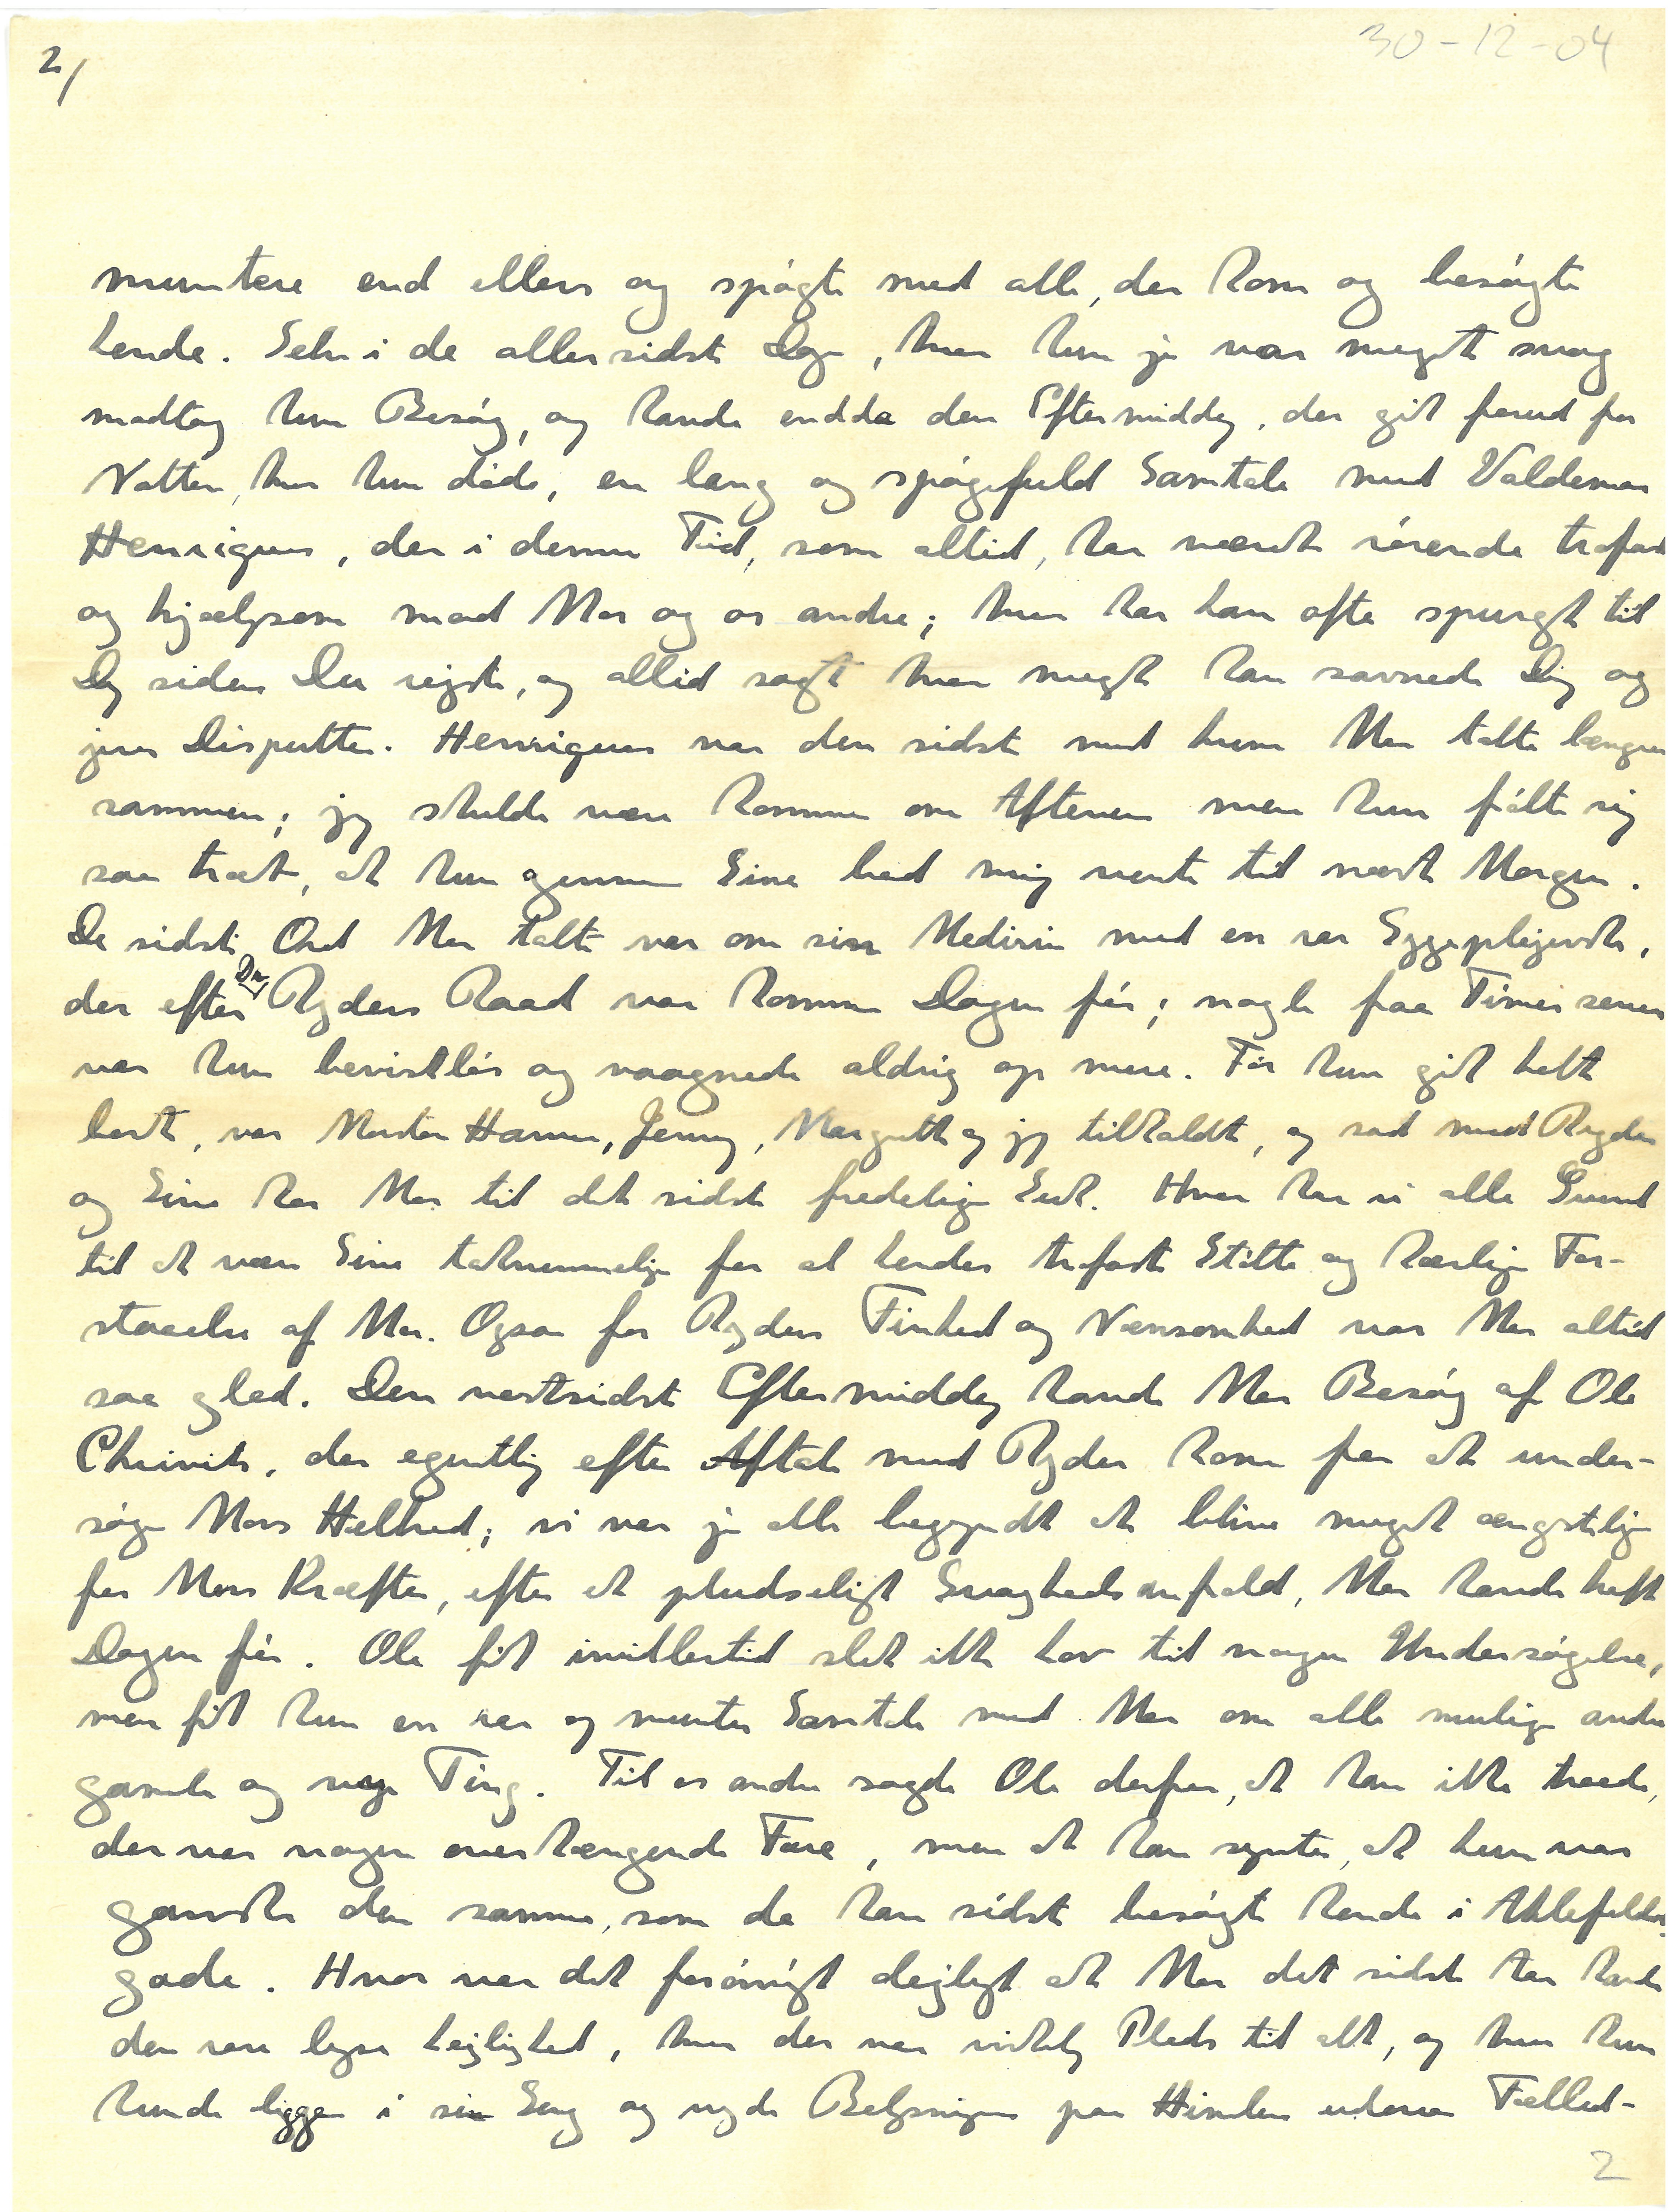 2/
30-12-04
muntere end ellers og spøgte med alle, der kom og besøgte
hende. Selv i de allersidste Dage, hvor hun jo var meget svag
modtog hun Besøg, og havde endda den Eftermiddag, der gik forud for
Natten, hvor hun døde, en lang og spøgefuld Samtale med Valdemar
Henriques, der i denne Tid, som altid, har været rørende trofast
og hjælpsom mod Mor og os andre; hvor har han ofte spurgt til
Dig siden Du rejste, og altid sagt hvor meget han savnede Dig og
jeres Disputter. Henriques var den sidste med hvem Mor talte længere
sammen; jeg skulde være kommen om Aftenen men hun følte sig
saa træt, at hun gennem Sine bad mig vente til næste Morgen.
De sidste Ord Mor talte var om sin Medicin med en rar Eggeplejerske,
der efter Dr. Ryders Raad var kommen Dagen før; nogle faa Timer senere
var hun bevistløs og vaagnede aldrig op mere. Før hun gik helt
bort, var Moster Hanne, Jenny, Margrethe og jeg tilkaldt, og sad med Ryder
og Sine hos Mor til det sidste fredelige Suk. Hvor har vi alle Grund
til at være Sine taknemmelige for al hendes trofaste Støtte og kærlige For-
staaelse af Mor. Ogsaa for Ryders Finhed og Nænsomhed var Mor altid
saa glad. Den næstsidste Eftermiddag havde Mor Besøg af Ole
Chievitz, der egentlig efter Aftale med Ryder kom for at under-
søge Mors Helbred; vi var jo alle begyndt at blive meget ængstelige
for Mors Kræfter, efter et pludseligt Svaghedsanfald, Mor havde haft
Dagen før. Ole fik imidlertid slet ikke Lov til nogen Undersøgelse,
men fik kun en rar og munter Samtale med Mor om alle mulige andre
gamle og nye Ting. Til os andre sagde Ole derfor, at han ikke troede,
der var nogen overhængende Fare, men at han syntes, at hun var
ganske den samme, som da han sidst besøgte hende i Ahlefeldts-
gade. Hvor var det forøvrigt dejligt at Mor det sidste Aar havde
den rare lyse Lejlighed, hvor der var virkelig Plads til alt, og hvor hun
kunde ligge i sin Seng og nyde Belysningen paa Himlen udover Fælled-
2